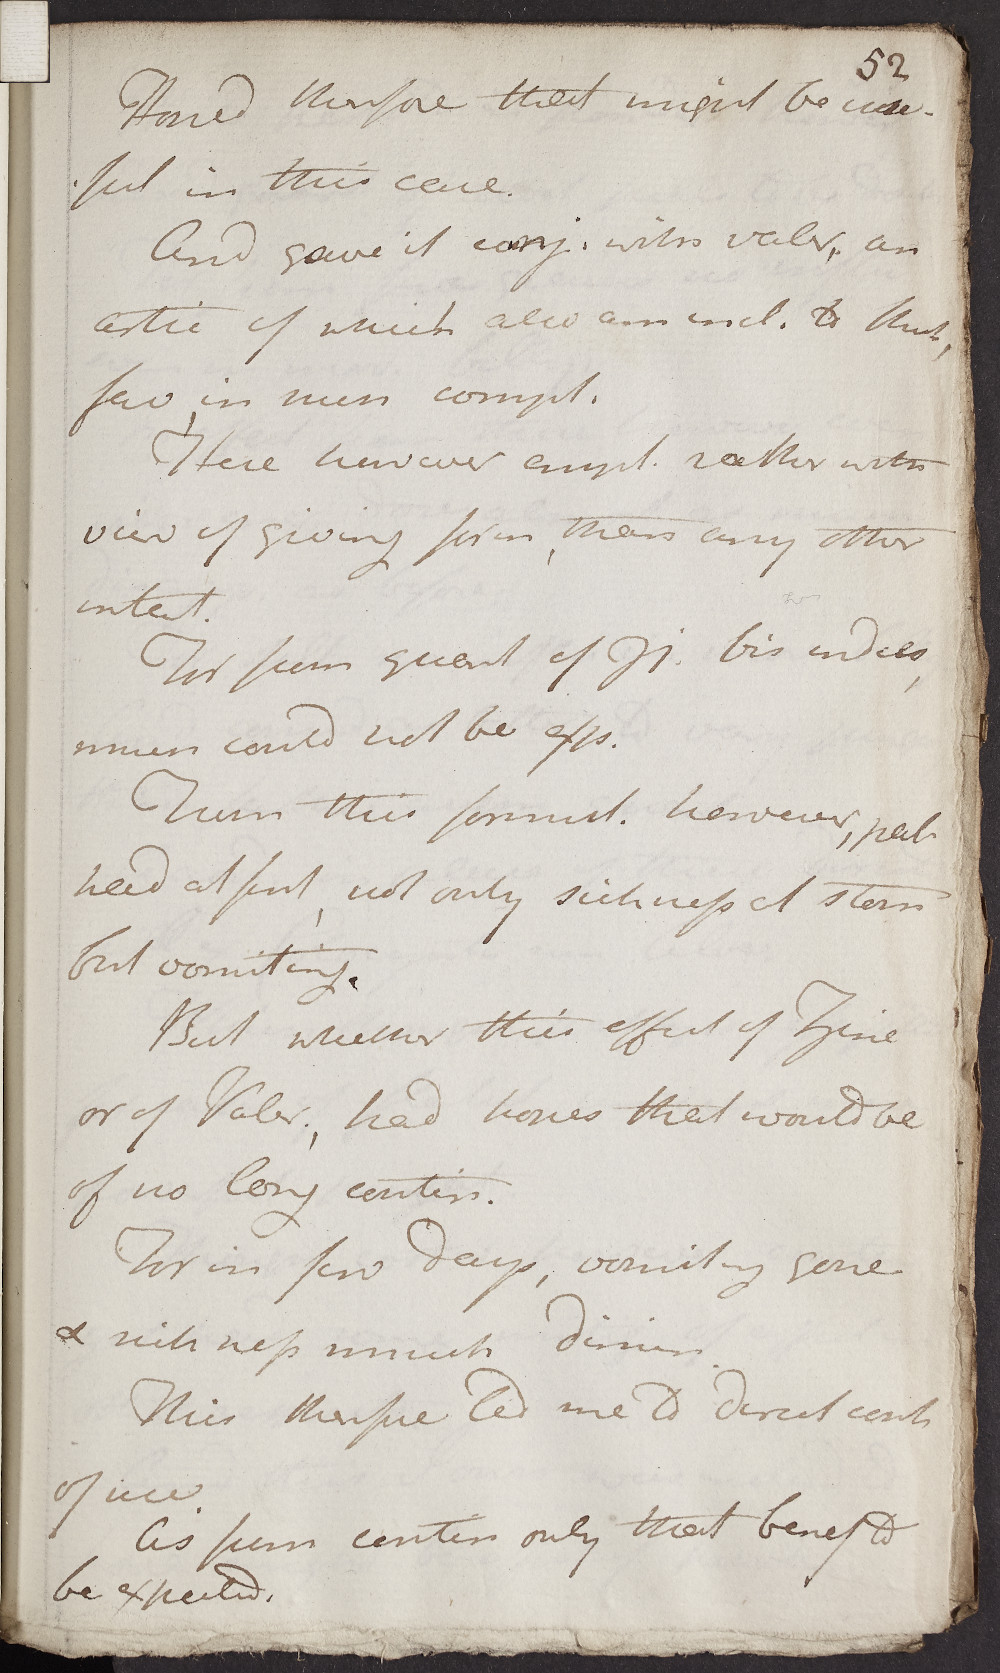 52
Hoped therefore that might be use-
ful in this case.
And gave it conj. with valer, an
artic of which also am incl. to think,
few, in men compl.
Here however empl. rather with
view of giving form, than any other
intent.
For from quant of ʒj. bis indies,
much could not be exp.
From this formul. however, pat
head at first, not only sickness at stom
but vomiting.
But whether this effect of Zinc
or of Valer., had hopes that would be
of no long contin.
For in few days, vomiting gone
& sickness much dimin.
This therefore led me to direct cont
of use.
As from contin only that benef to
be expected.